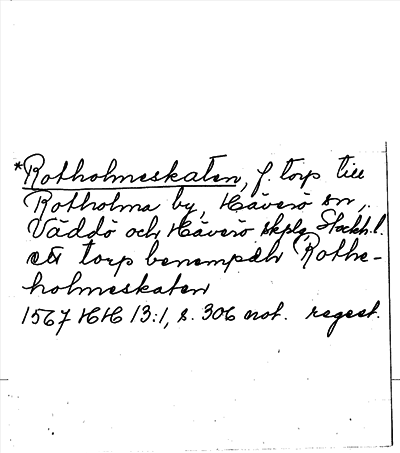 *Rotholmeskaten, f. torp till
Rotholma by, Häverö sn,
Väddö och Häverö skplg, Stockh.l.
ett torp benempdh Rothe-
holmeskaten
1567 HH 13:1, s. 306 not. regest.